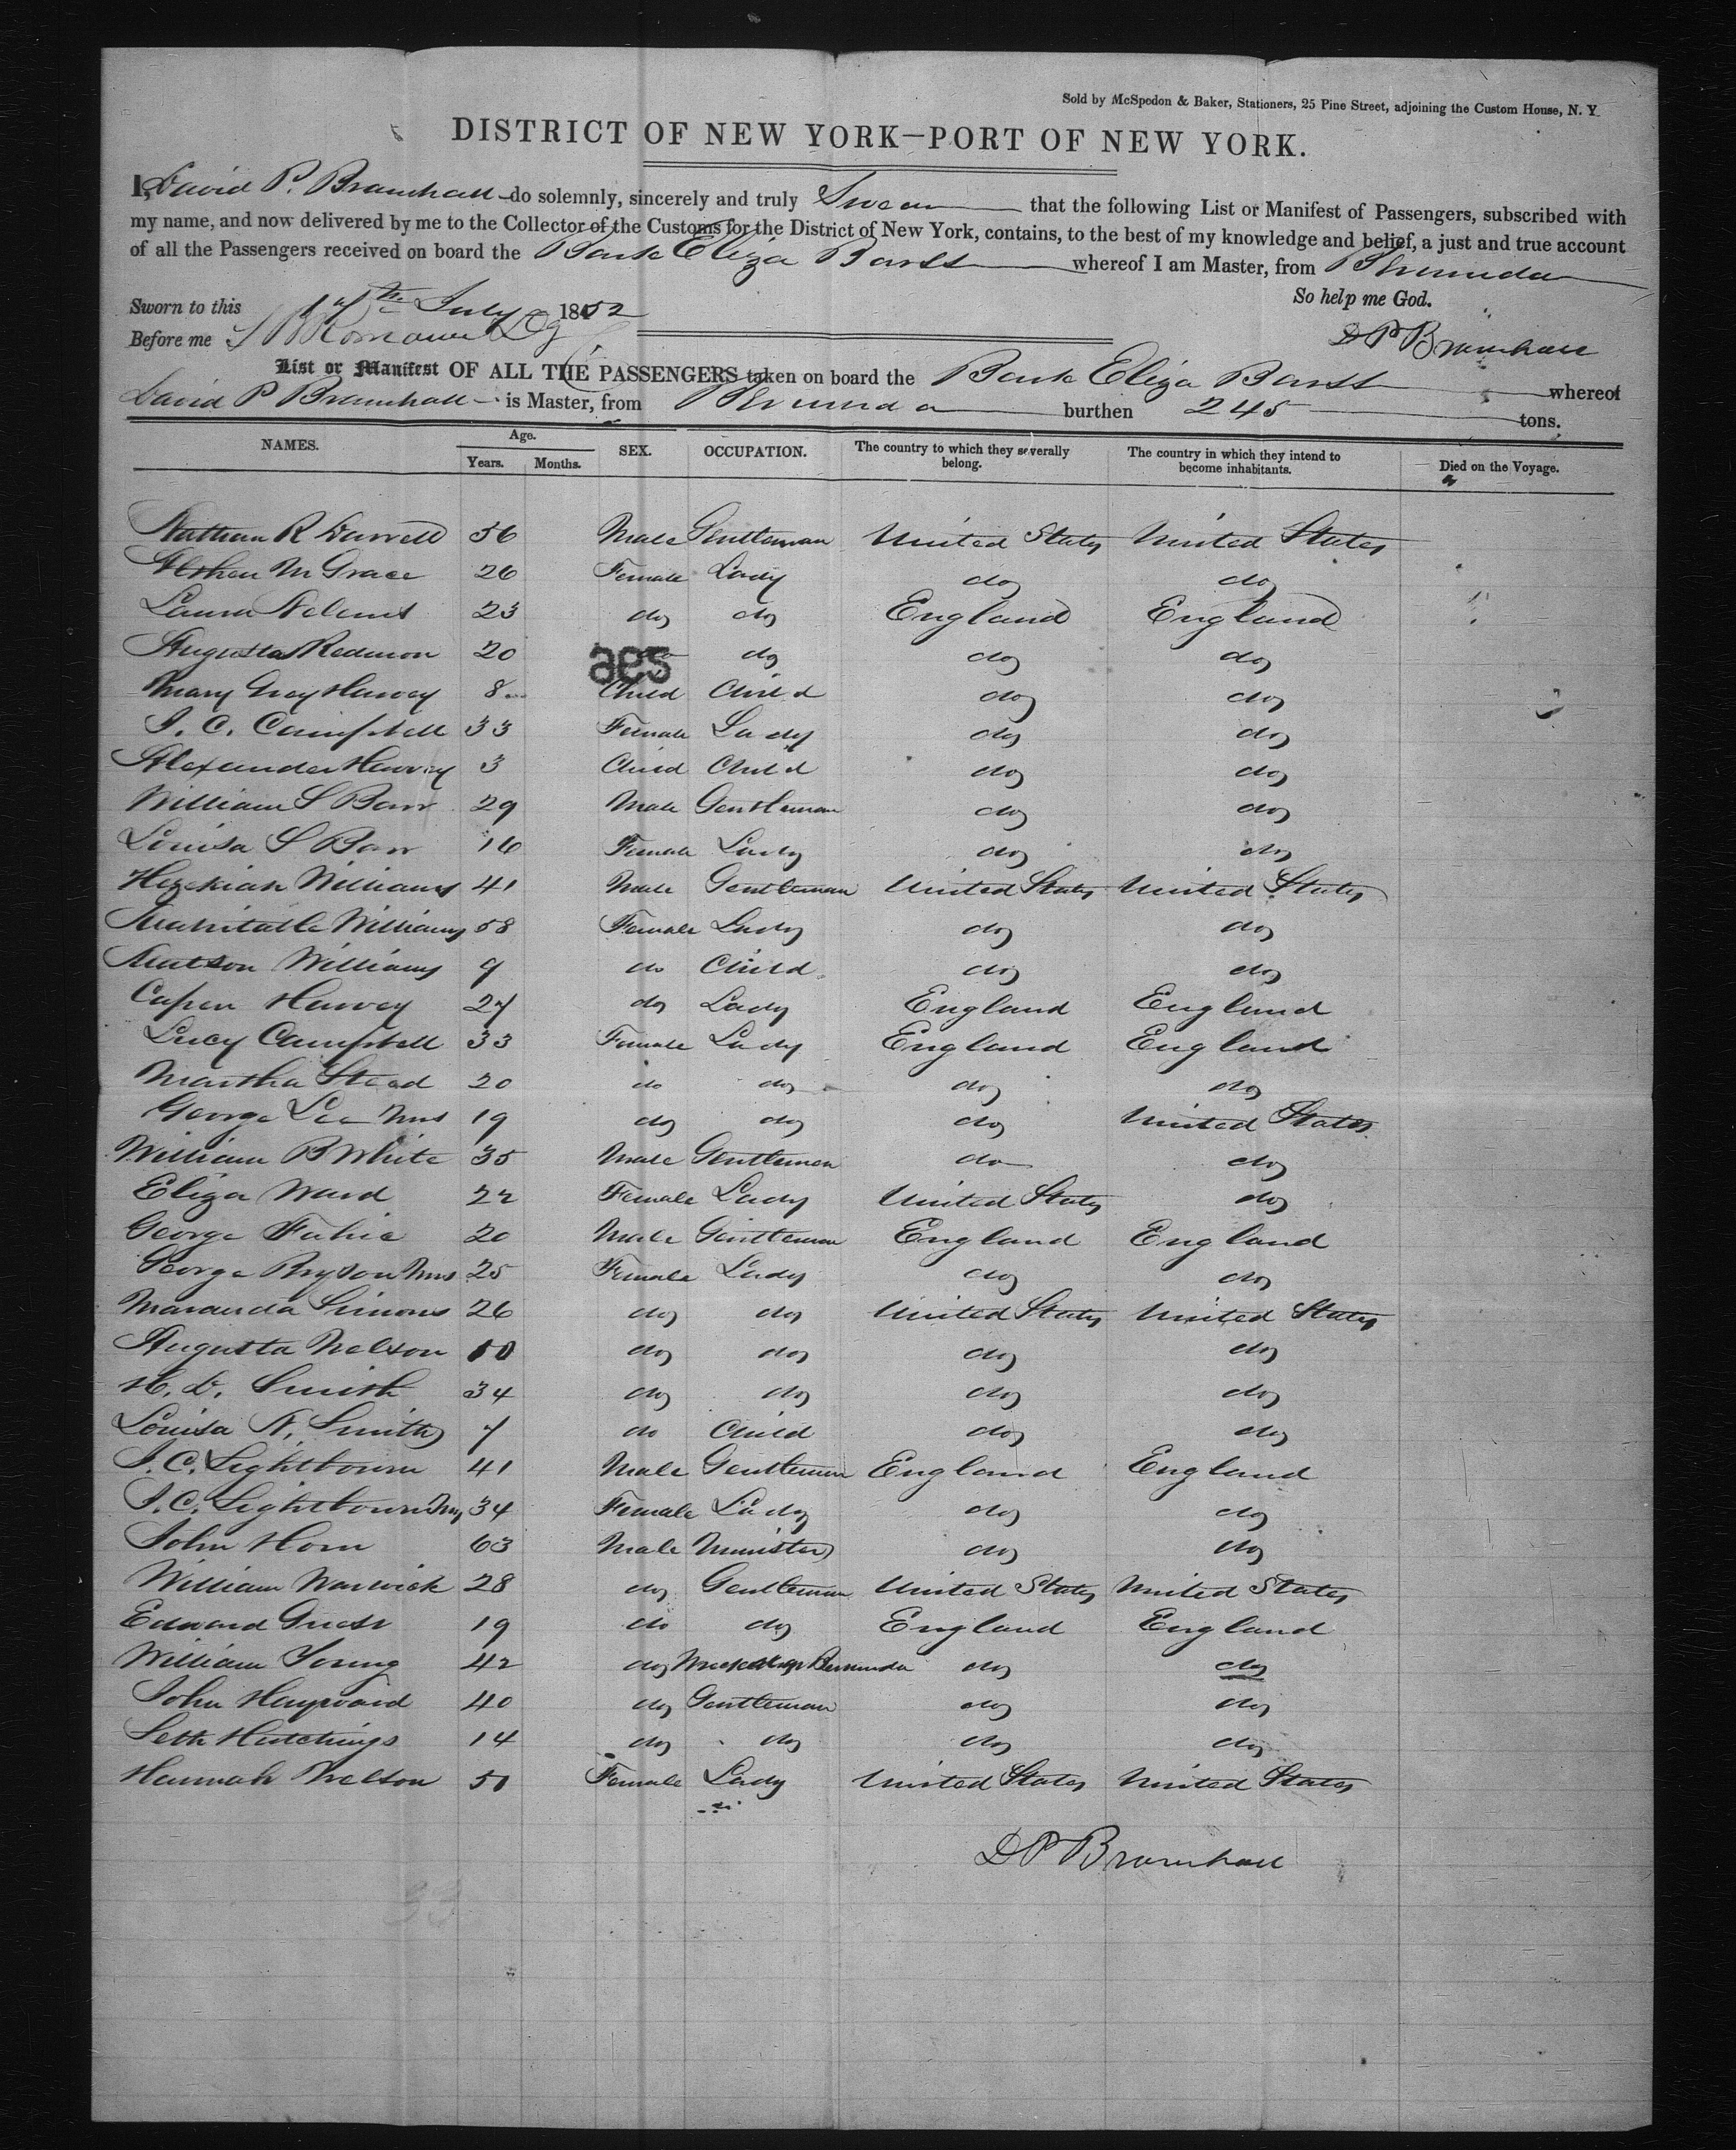 Sold by McSpedon & Baker, Stationers, 25 Pine Street, adjoining the Custom House, N. Y.
DISTRICT OF NEW YORK—PORT OF NEW YORK.
I, David P. Bramhall do solemnly, sincerely and truly Swear that the following List or Manifest of Passengers, subscribed with
my name, and now delivered by me to the Collector of the Customs for the District of New York, contains, to the best of my knowledge and belief, a just and true account
of all the Passengers received on board the Bark Eliza Barss whereof I am Master, from Bermuda
So help me God.
Sworn to this July 1852
Before me
D P Bramhall
List or Manifest OF ALL THE PASSENGERS taken on board the Bark Eliza Barss whereof
David P Bramhall is Master, from Bermuda burthen 245 tons.
NAMES. Age. Years. Months. SEX. OCCUPATION. The country to which they severally belong. The country in which they intend to become inhabitants. Died on the Voyage.
Nathan R Durrell 56 Male Gentleman United States United States
M Grace 26 Female Lady do do
Laura Nelmes 23 do do England England
Augusta Redmon 20 do do do
Mary Gray Harvey 8 Child Child do do
J. C. Campbell 33 Female Lady do do
Alexander Harvey 3 Child Child do do
William S Barr 29 Male Gentleman do do
Louisa S Barr 16 Female Lady do do
Hezekiah Williams 41 Male Gentleman United States United States
Williams 58 Female Lady do do
Williams 9 do Child do do
Harvey 27 do Lady England England
Lucy Campbell 33 Female Lady England England
Martha Stead 20 do do do do
George Lee Mrs 19 do do do United States
William B White 35 Male Gentleman do do
Eliza Ward 22 Female Lady United States do
George Fahie 20 Male Gentleman England England
George Bryson Mrs 25 Female Lady do do
Maranda Simons 26 do do United States United States
Augusta Nelson 10 do do do do
H. D. Smith 34 do do do do
Louisa N. Smith 7 do Child do do
J. C. Lightbourn 41 Male Gentleman England England
J. C. Lightbourn Mrs 34 Female Lady do do
John Horn 63 Male Minister do do
William Warwick 28 do Gentleman United States United States
Edward Guest 19 do do England England
William Young 42 do Bermuda do do
John Hayward 40 do Gentleman do do
Seth Hutchings 14 do do do do
Hannah Nelson 51 Female Lady United States United States
D P Bramhall
33